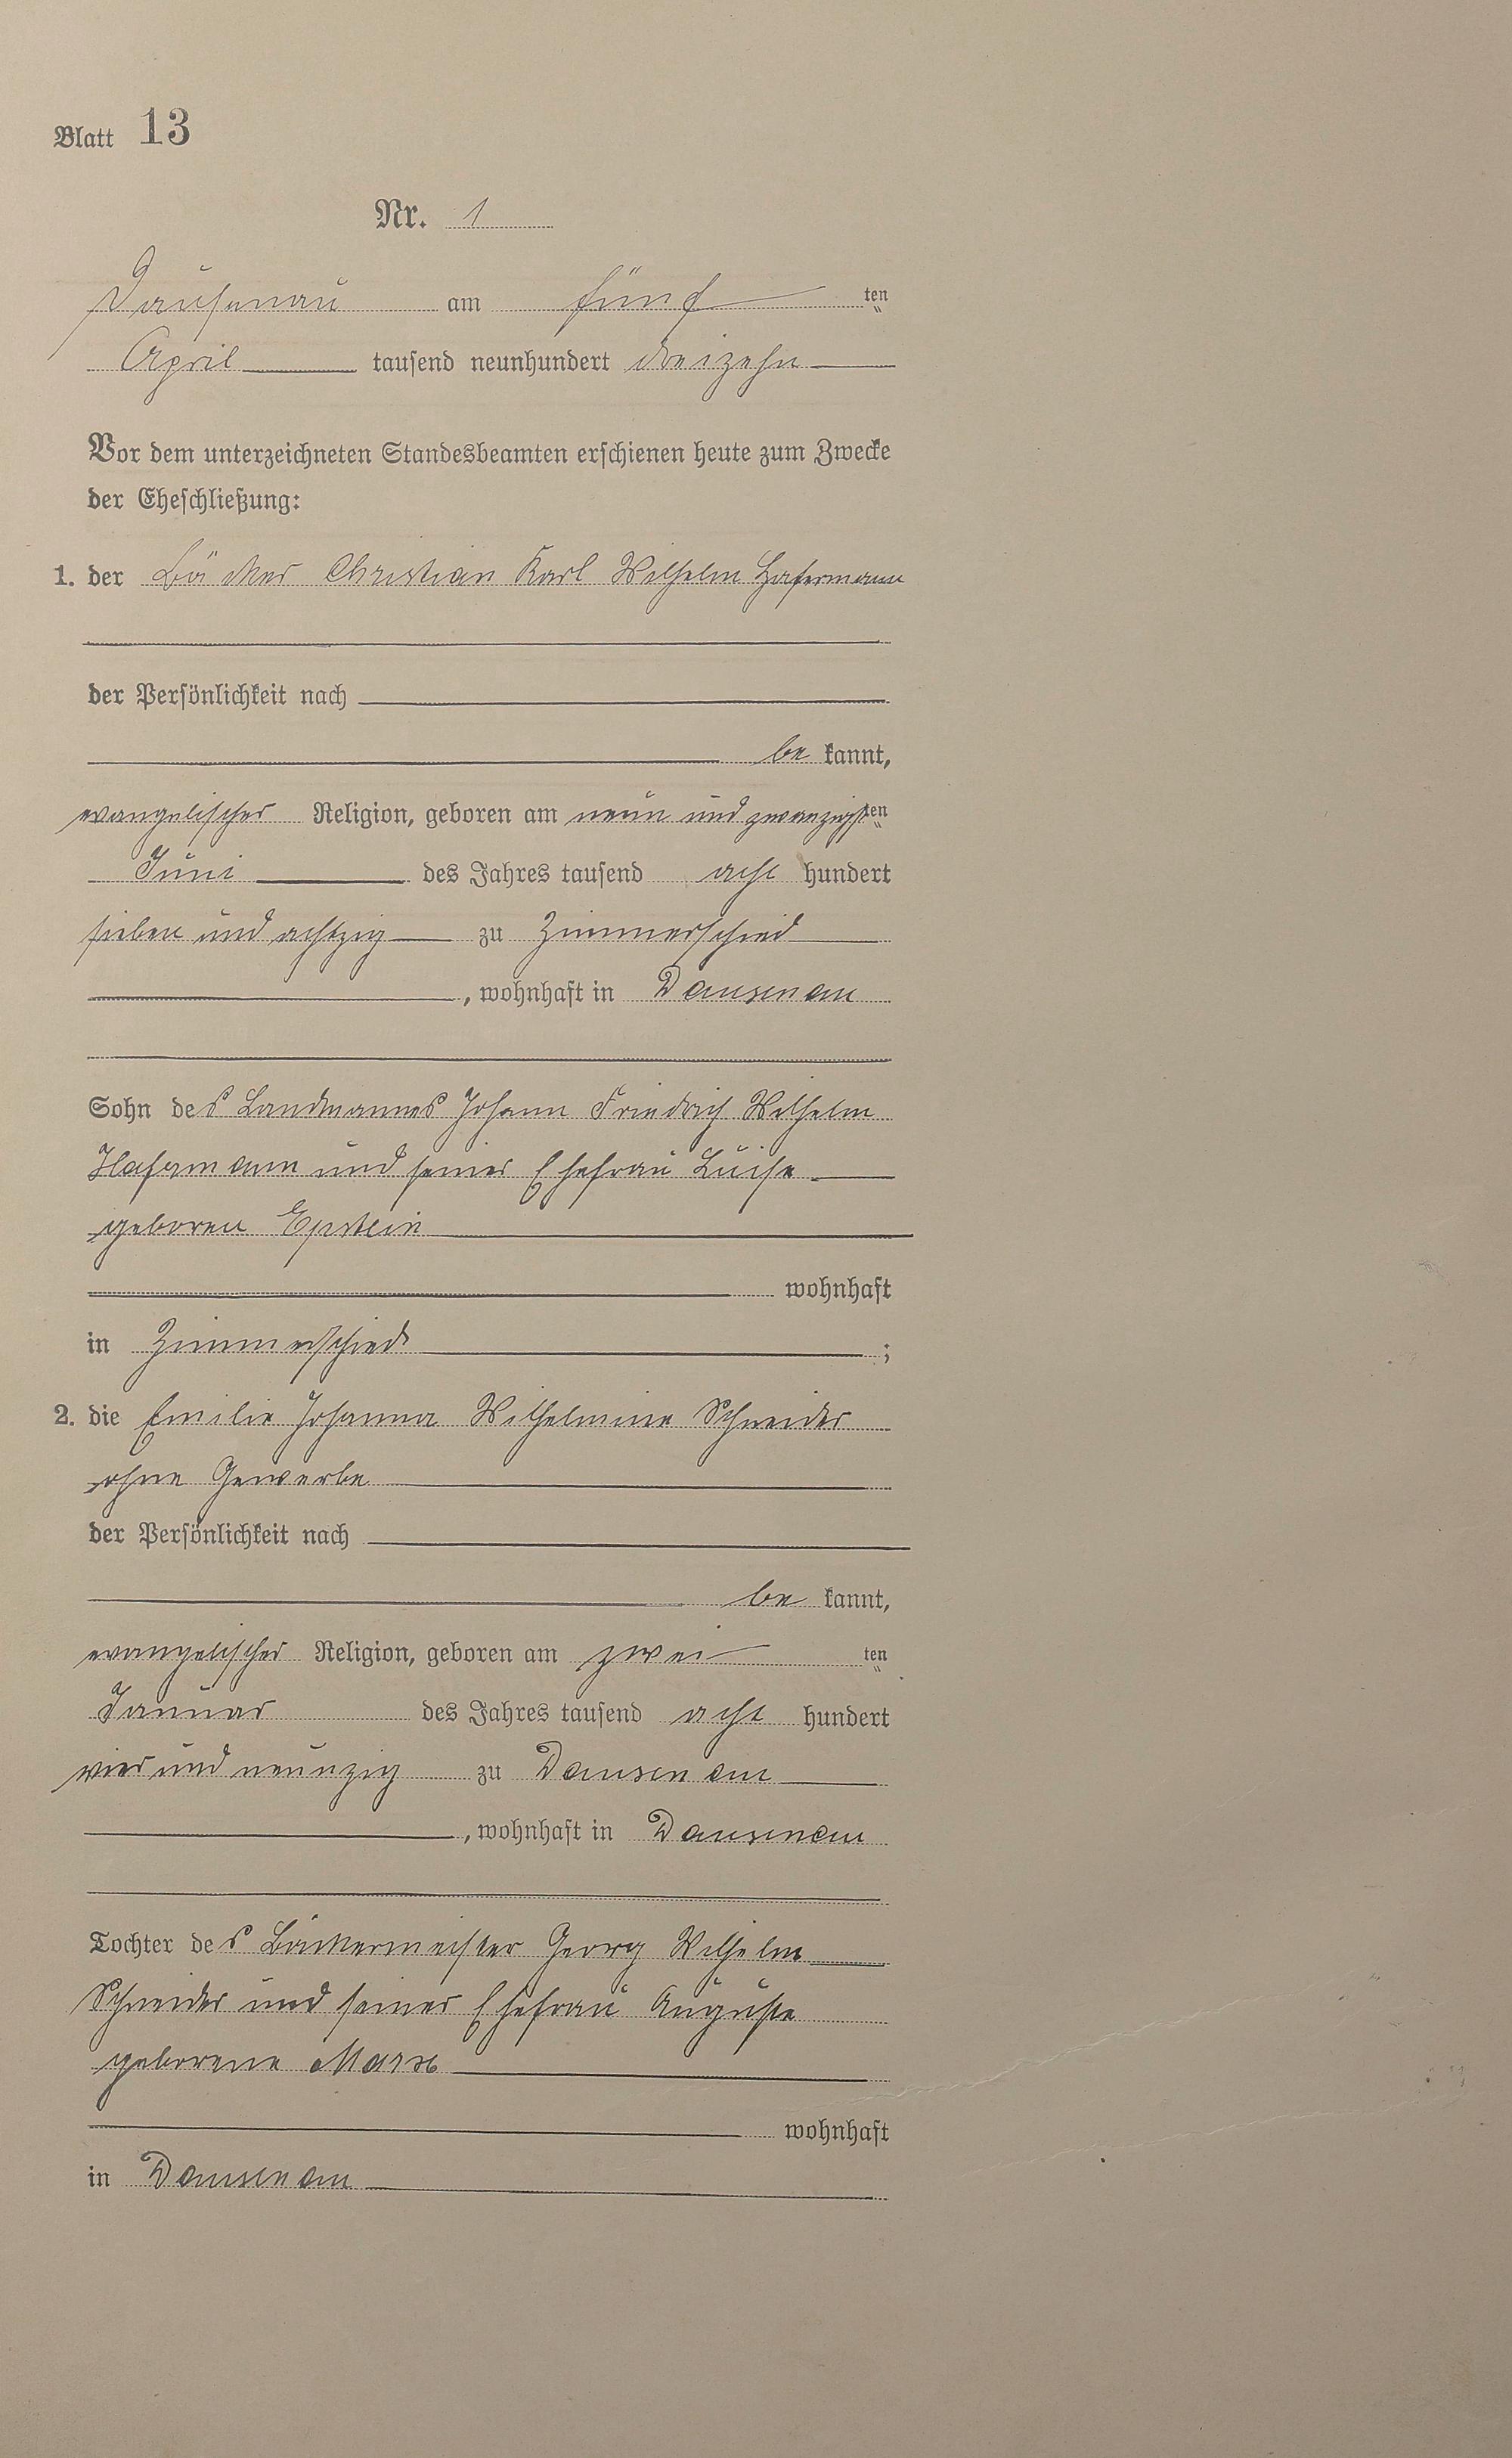 Blatt 13
Nr. 1
Dausenau am fünf ten
April tausend neunhundert dreizehn
Vor dem unterzeichneten Standesbeamten erschienen heute zum Zwecke
der Eheschließung:
1. der Bäcker Christian Karl Wilhelm Hafermann
der Persönlichkeit nach
be kannt,
evangelischer Religion, geboren am neun und zwanzigsten
Juni des Jahres tausend acht hundert
sieben und achtzig zu Zimmerschied
, wohnhaft in Dausenau
Sohn des Landmannes Johann Friedrich Wilhelm
Hafermann und seiner Ehefrau Luise
geboren Epstein
wohnhaft
in Zimmerschied ;
2. die Emilie Johanna Wilhelmine Schneider
ohne Gewerbe
der Persönlichkeit nach
be kannt,
evangelischer Religion, geboren am zwei ten
Januar des Jahres tausend acht hundert
vier und neunzig zu Dausenau
, wohnhaft in Dausenau
Tochter des Bäckermeister Georg Wilhelm
Schneider und seiner Ehefrau Auguste
geborene Marx
wohnhaft
in Dausenau